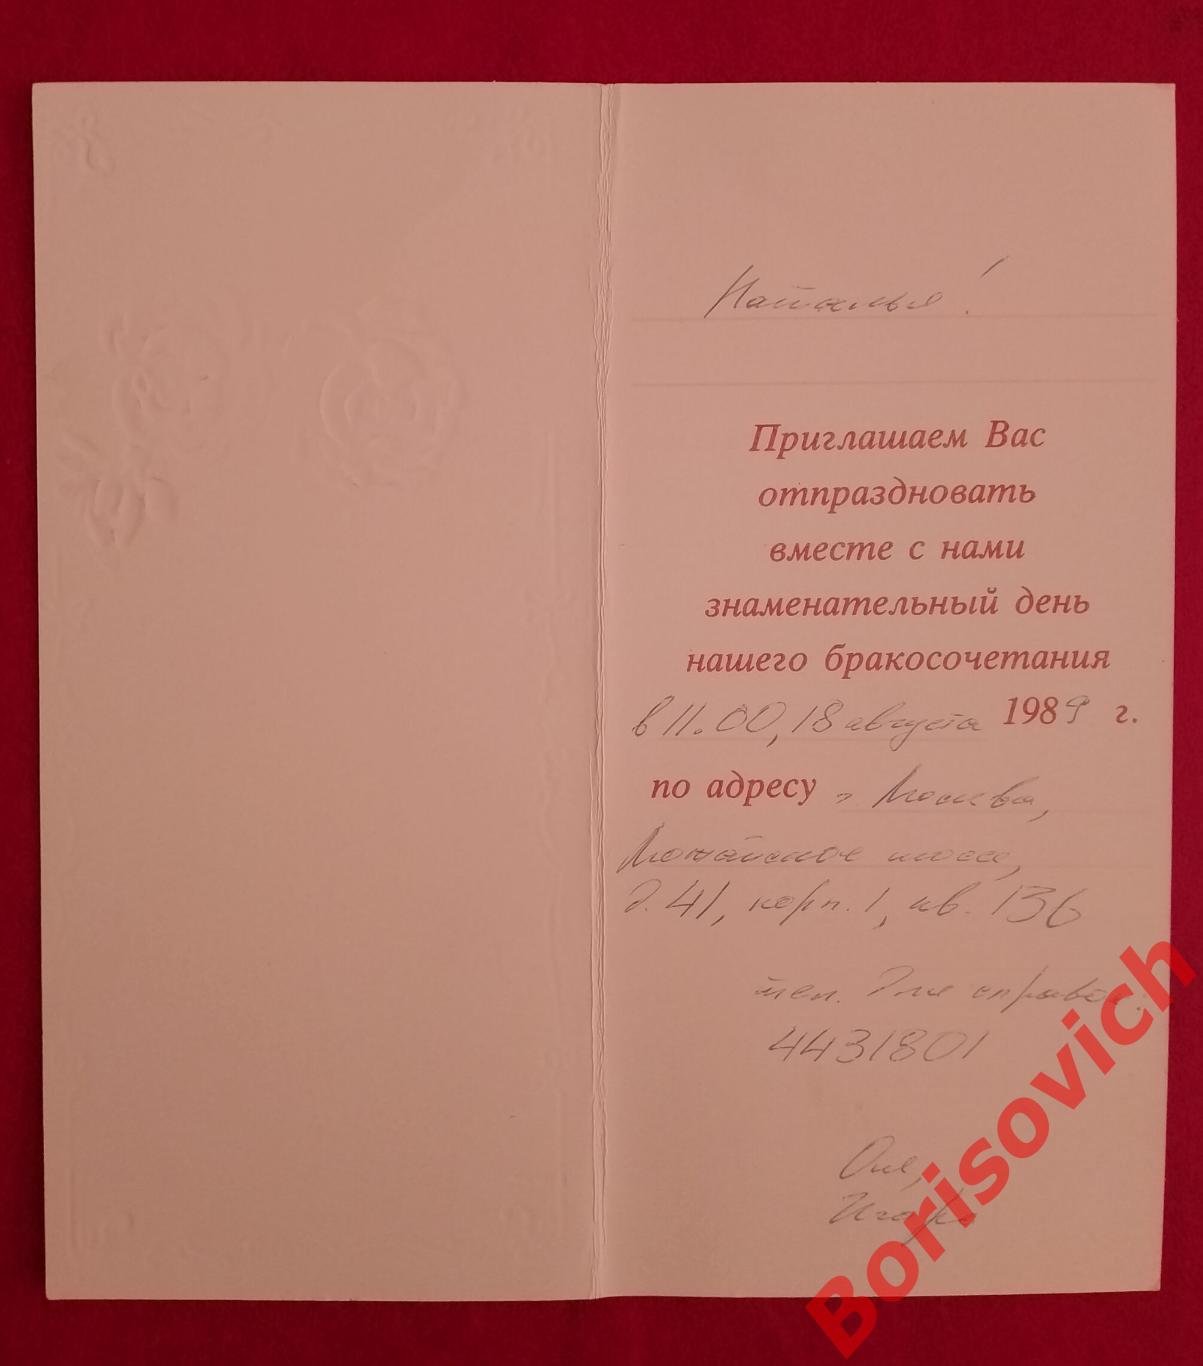 Наталья!
Приглашаем Вас
отпраздновать
вместе с нами
знаменательный день
нашего бракосочетания
в 11.00, 18 августа 1989 г.
по адресу г. Москва,
Можайское шоссе,
д. 41, корп. 1, кв. 136
тел. для справок:
4431801
Оля,
Игорь
Borisovich